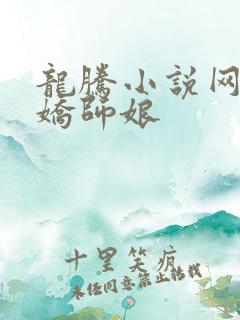 龍騰小說网
嬌師娘
十里笑疯
未经同意禁止转载